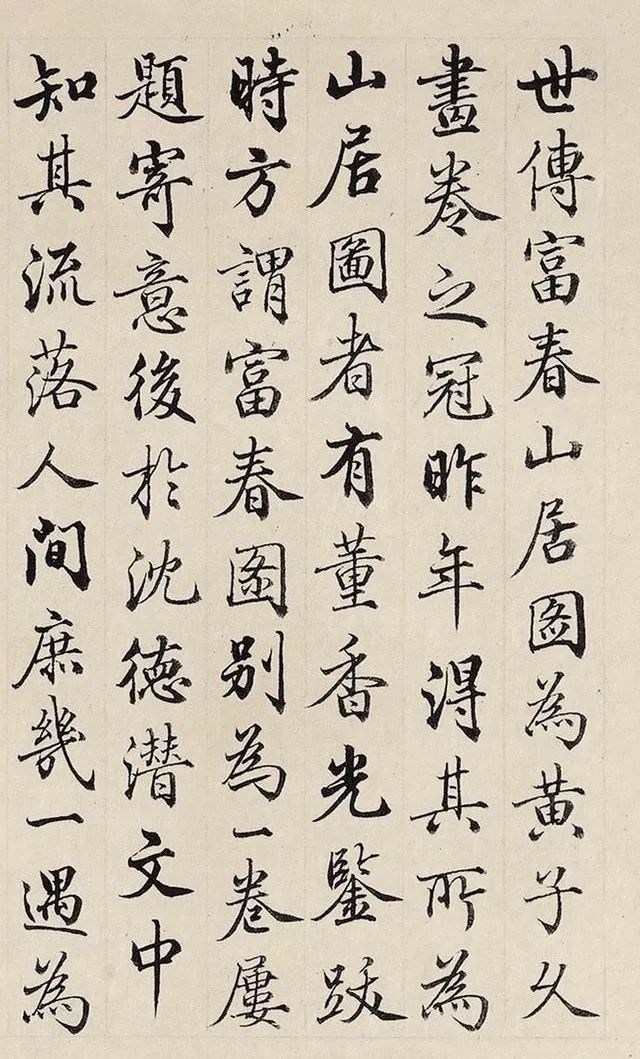 世傳富春山居圖為黄子久
畫卷之冠昨年得其所為
山居圖者有董香光鑒跋
時方謂富春圖别為一卷屢
題寄意後於沈德潛文中
知其流落人間庶幾一遇為